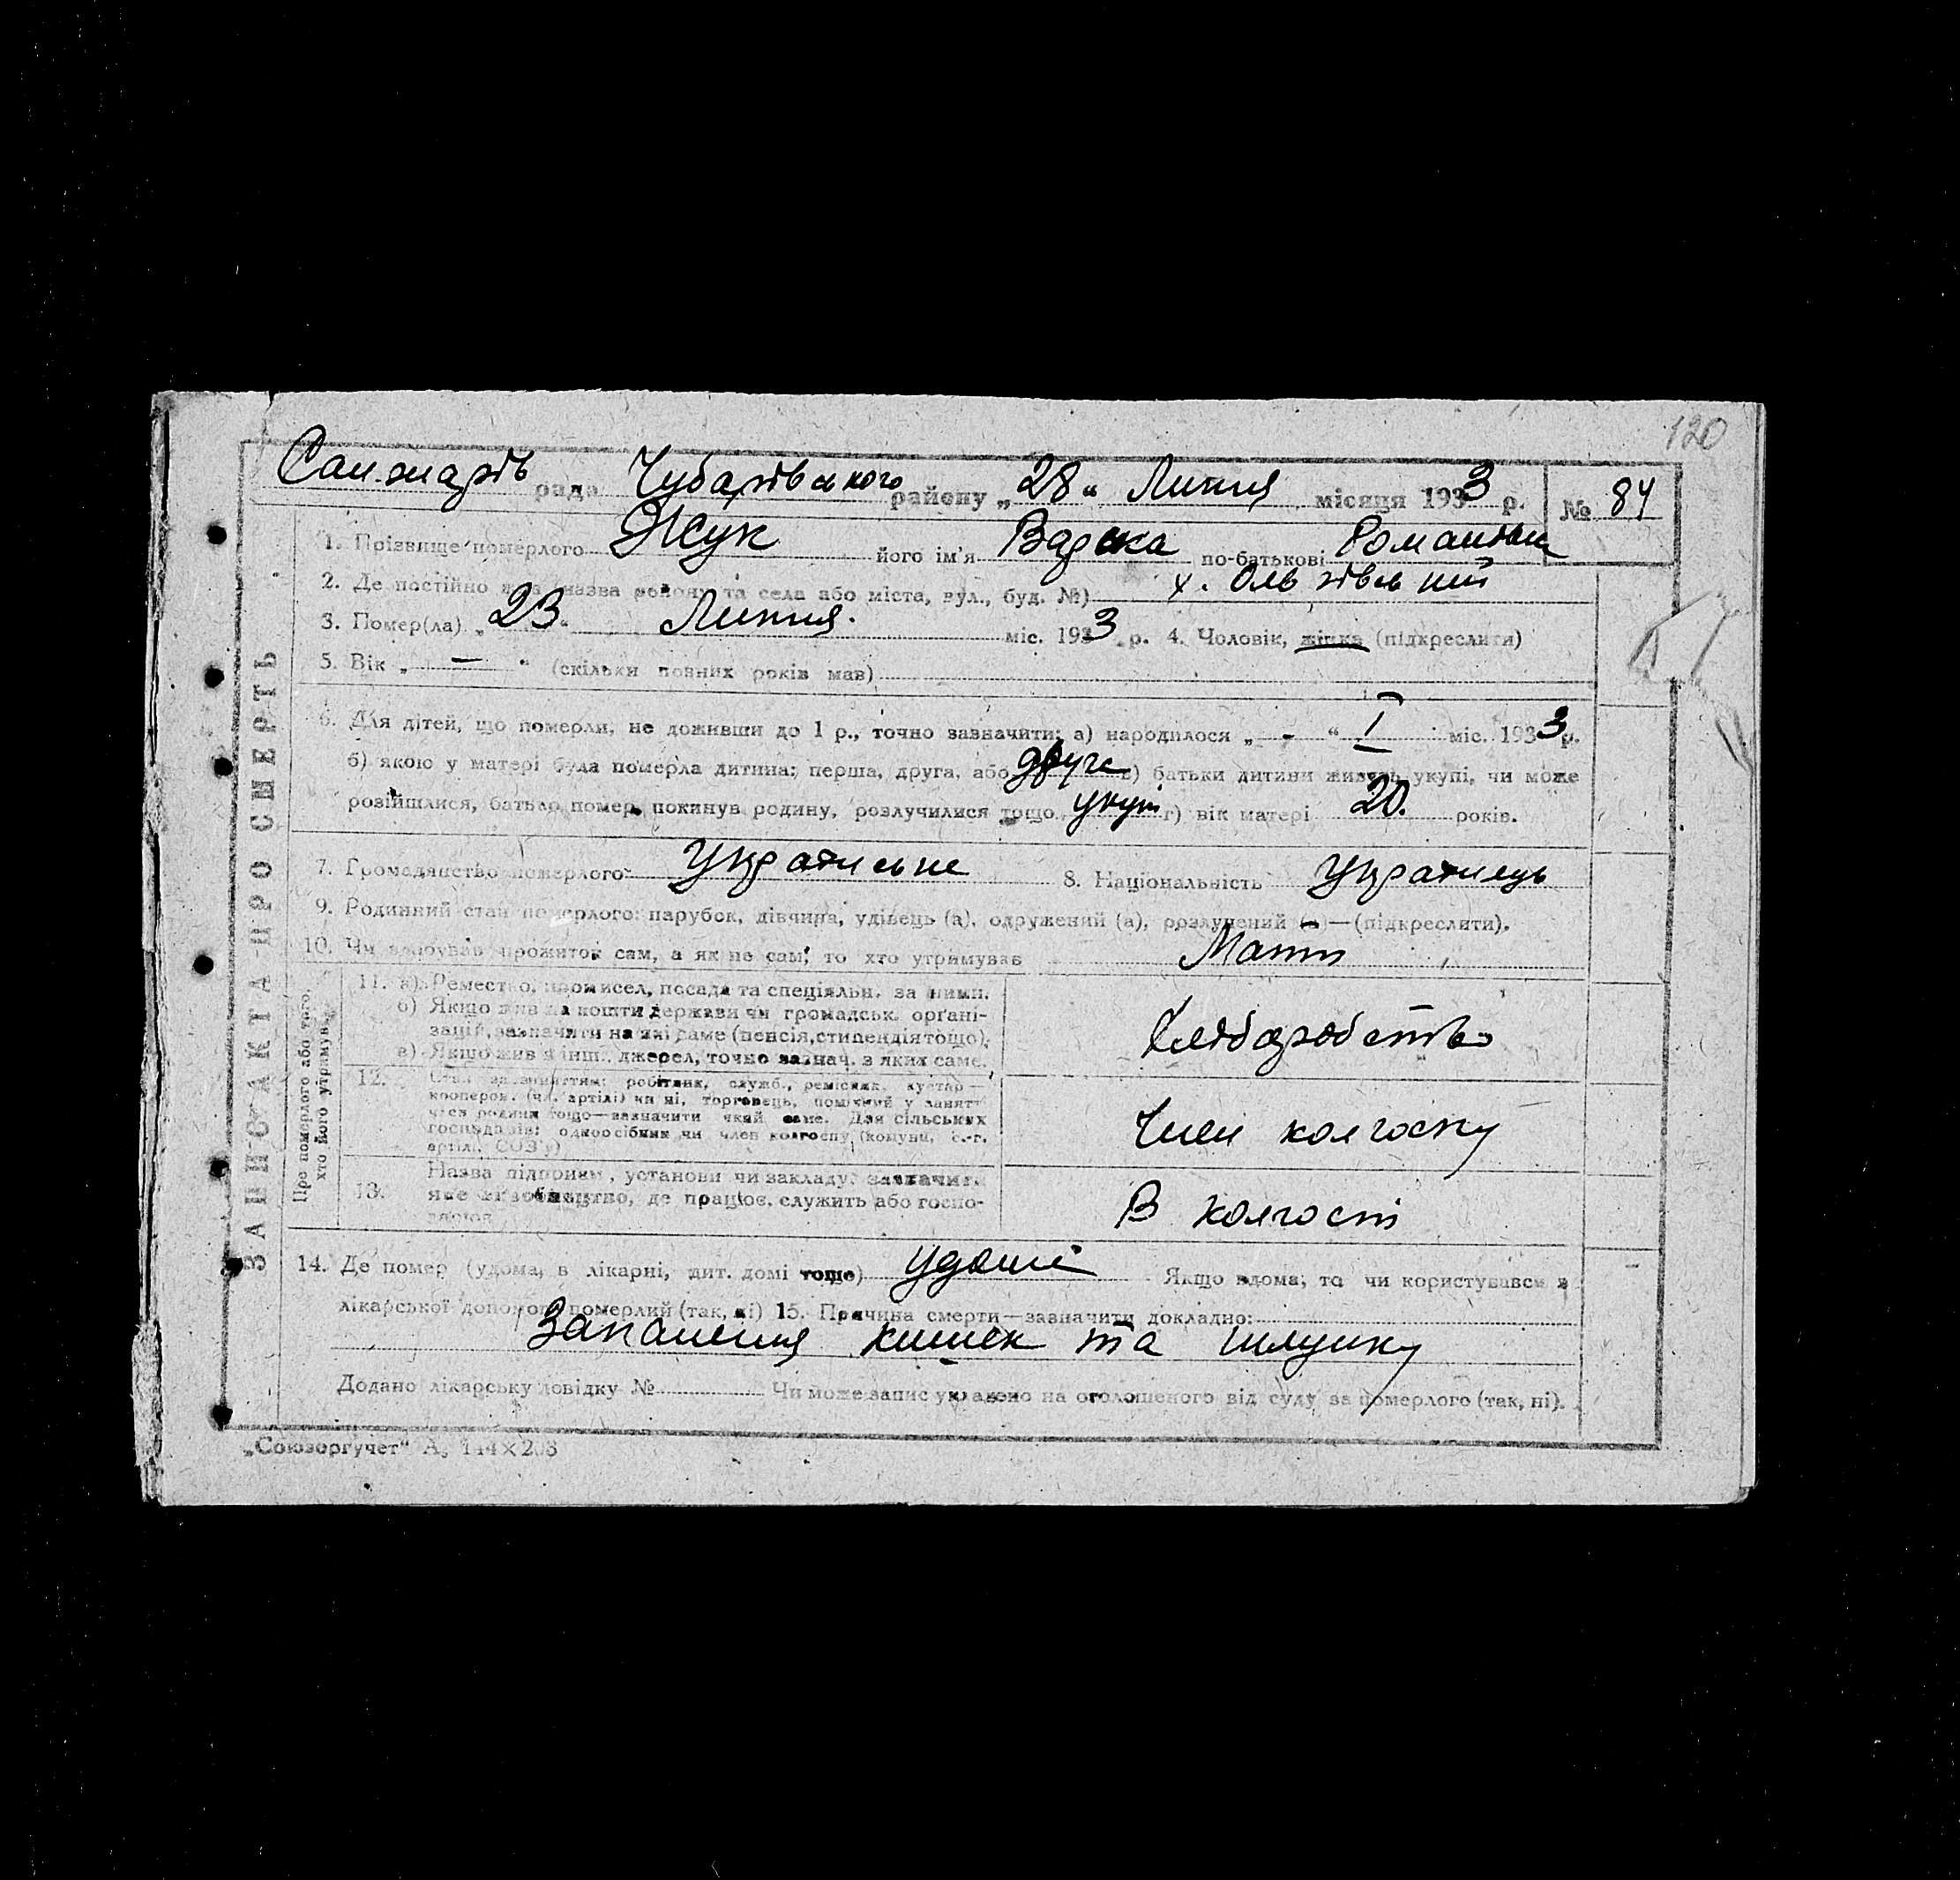 120
рада Чубарівського району „ 28 “ Липня місяця 1933 р. № 84
1. Прізвище померлого Жук його ім'я Варька по-батькові
2. Де постійно жив (назва району та села або міста, вул., буд. №) х.
3. Помер(ла) „ 23 “ Липня. міс. 1933 р. 4. Чоловік, жінка (підкреслити)
5. Вік „ — “ (скільки повних років мав)
6. Для дітей, що померли, не доживши до 1 р., точно зазначити: а) народилося „ - “ I міс. 1933 р.
б) якою у матері була померла дитина: перша, друга, або друге в) батьки дитини живуть укупі, чи може
розійшлися, батько помер, покинув родину, розлучилися тощо укупі г) вік матері 20. років.
7. Громадянство померлого Українське 8. Національність Українець
9. Родинний стан померлого: парубок, дівчина, удівець (а), одружений (а), розлучений (а)—(підкреслити).
10. Чи заробував прожиток сам, а як не сам, то хто утримував Мати
ЗАПИС АКТА ПРО СМЕРТЬ
Про померлого або того, хто його утримував
11. а) Ремество, промисел, посада та спеціяльн. за ними.
б) Якщо жив на кошти держави чи громадськ. орґані-
зацій, зазначити на які саме (пенсія, стипендія тощо).
в) Якщо жив з інш. джерел, точно зазнач. з яких саме.
Хліборобство
12. Стан за заняттям: робітник, служб., ремісник, кустар—
кооперов. (чл. артілі) чи ні, торговець, помічний у занятті
член родини тощо—зазначити який саме. Для сільських
господарів: одноосібник чи член колгоспу (комуни, с.-г.
артілі, СОЗ'у)
Член колгоспу
13. Назва підприєм., установи чи закладу: зазначити
яке виробництво, де працює, служить або госпо-
В колгоспі
14. Де помер (удома, в лікарні, дит. домі тоще) удомі Якщо вдома, то чи користувався з
лікарської допомоги померлий (так, ні) 15. Причина смерти—зазначити докладно:
Запалення кишек та шлунку
Додано лікарську довідку № Чи може запис укладено на оголошеного від суду за померлого (так, ні).
„Союзоргучет“